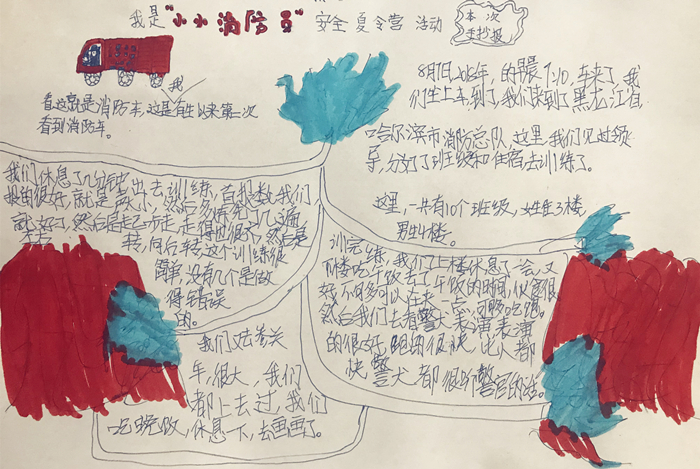 我是"小小消防员"安全夏令营活动
本次
手抄报
我
看这就是消防车,这是有生以来第一次
看到消防车。
8月7日2018年,的早晨7:10,车来了,我
们坐上车,到了,我们来到了黑龙江省
哈尔滨市消防总队,这里,我们见过领
导,分好了班级和住宿去训练了。
这里,一共有10个班级,女生3楼,
男生4楼。
我们休息了几分钟出去训练,首报数,我们
报的很好,就是
就好了,然后是起
转,向后转这个训练很
简单,没有几个是做
得错误
的。
训完练,我们上楼休息了一会,又
下楼吃午饭去了,午饭的时间,伙食很
好,不够可以在来一点
然后我们去看警犬表演,表演
的很好,跑的很快,比人都
快,警犬都很听警官的话。
我们去参关
车,很大,我们
都上去过,我们
吃晚饭,休息一下,去画画了。